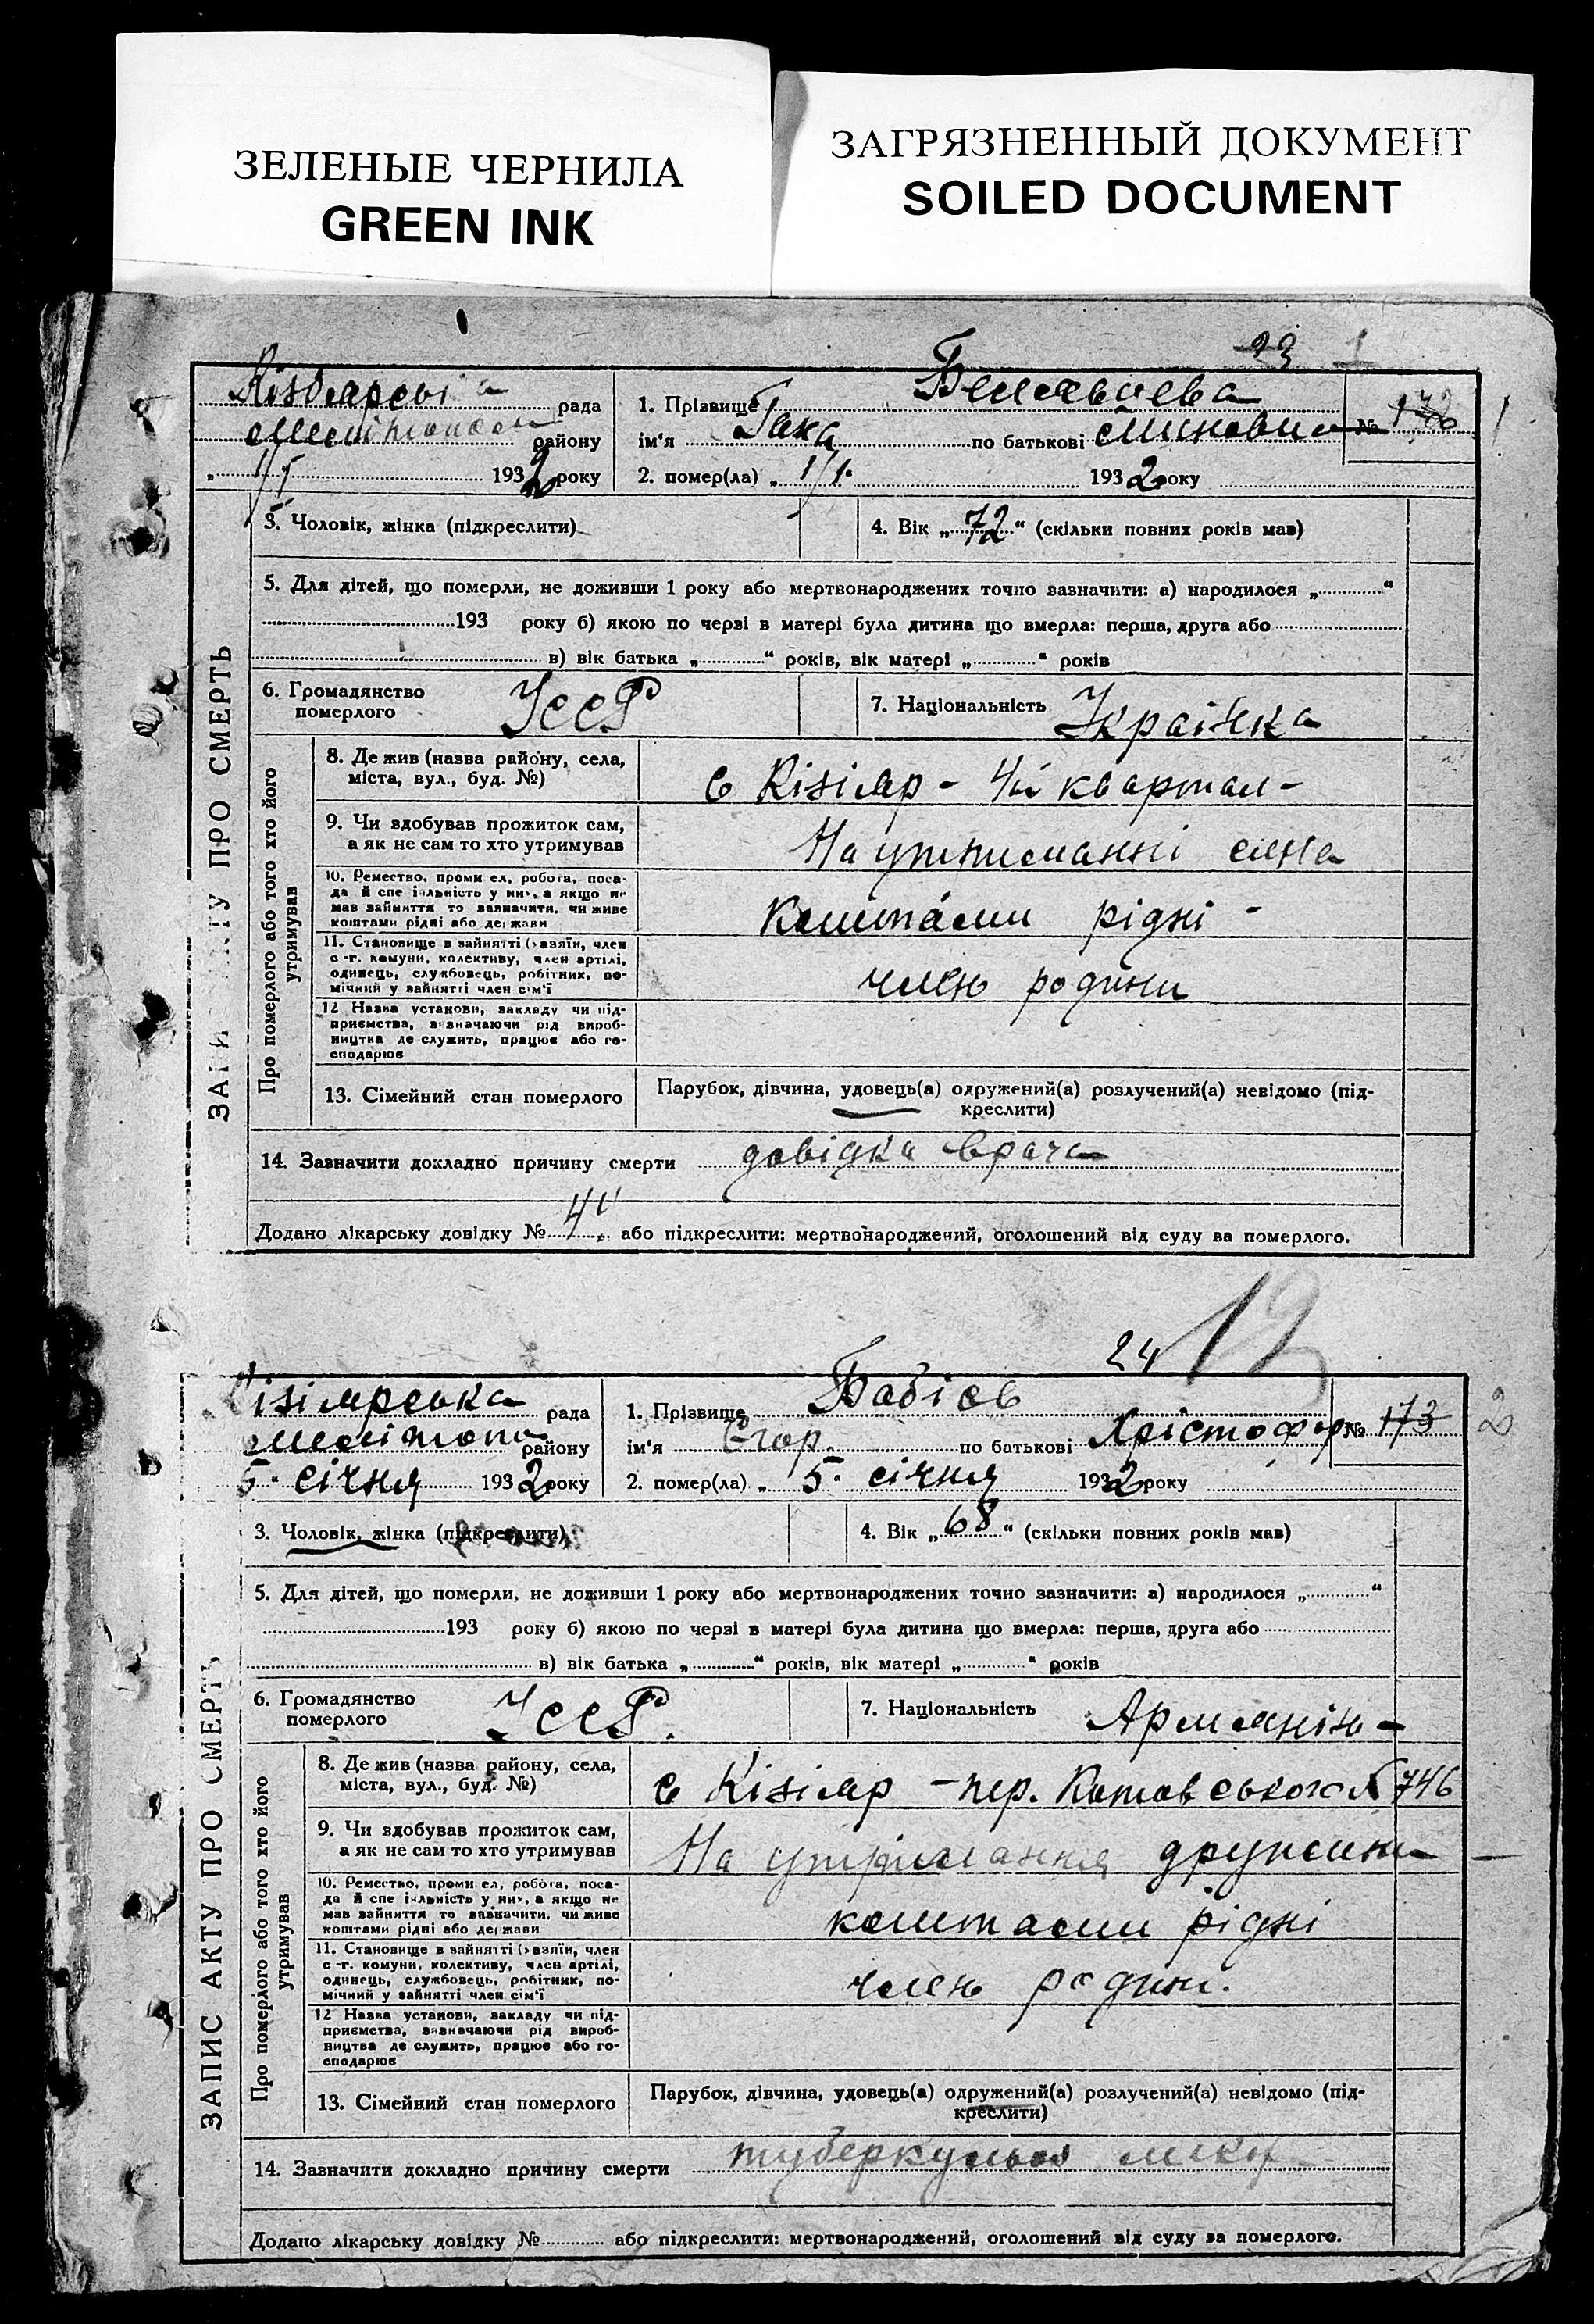 ЗЕЛЕНЫЕ ЧЕРНИЛА
GREEN INK
ЗАГРЯЗНЕННЫЙ ДОКУМЕНТ
SOILED DOCUMENT
23 1
рада
району
1/I 1932 року
1. Прізвище
ім'я по батькові №
2. помер(ла) „ 1/I 1932 року
ЗАПИС АКТУ ПРО СМЕРТЬ
3. Чоловік, жінка (підкреслити)
4. Вік „72“ (скільки повних років мав)
5. Для дітей, що померли, не доживши 1 року або мертвонароджених точно зазначити: а) народилося „ “
193 року б) якою по черзі в матері була дитина що вмерла: перша, друга або
в) вік батька „ “ років, вік матері „ “ років
6. Громадянство померлого УССР
7. Національність Українка
Про померлого або того хто його утримував
8. Де жив (назва району, села,
міста, вул., буд. №)
с Кізіяр - 4й квартал -
9. Чи здобував прожиток сам,
а як не сам то хто утримував
На утриманні сина
10. Ремество, промисел, робота, поса-
да й спеціяльність у них, а якщо не
мав зайняття то зазначити, чи живе
коштами рідні або держави
коштами рідні -
11. Становище в зайнятті (хазяїн, член
с.-г. комуни, колективу, член артілі,
одинець, службовець, робітник, по-
мічний у зайнятті член сім'ї
член родини
12 Назва установи, закладу чи під-
приємства, зазначаючи рід вироб-
ництва де служить, працює або го-
сподарює
13. Сімейний стан померлого
Парубок, дівчина, удовець(а) одружений(а) розлучений(а) невідомо (під-
креслити)
14. Зазначити докладно причину смерти довідка врача
Додано лікарську довідку № або підкреслити: мертвонароджений, оголошений від суду за померлого.
24 12
Кізіярська рада
району
5. січня 1932 року
1. Прізвище Бабієв
ім'я Єгор. по батькові Хрістофор № 173 2
2. помер(ла) „ 5. січня 1932 року
ЗАПИС АКТУ ПРО СМЕРТЬ
3. Чоловік, жінка (підкреслити)
4. Вік „68“ (скільки повних років мав)
5. Для дітей, що померли, не доживши 1 року або мертвонароджених точно зазначити: а) народилося „ “
193 року б) якою по черзі в матері була дитина що вмерла: перша, друга або
в) вік батька „ “ років, вік матері „ “ років
6. Громадянство померлого УССР.
7. Національність
Про померлого або того хто його утримував
8. Де жив (назва району, села,
міста, вул., буд. №)
с Кізіяр - пер. Котовського № 746
9. Чи здобував прожиток сам,
а як не сам то хто утримував
На утримання дружини
10. Ремество, промисел, робота, поса-
да й спеціяльність у них, а якщо не
мав зайняття то зазначити, чи живе
коштами рідні або держави
коштами рідні
11. Становище в зайнятті (хазяїн, член
с.-г. комуни, колективу, член артілі,
одинець, службовець, робітник, по-
мічний у зайнятті член сім'ї
член родини.
12 Назва установи, закладу чи під-
приємства, зазначаючи рід вироб-
ництва де служить, працює або го-
сподарює
13. Сімейний стан померлого
Парубок, дівчина, удовець(а) одружений(а) розлучений(а) невідомо (під-
креслити)
14. Зазначити докладно причину смерти туберкульоз
Додано лікарську довідку № або підкреслити: мертвонароджений, оголошений від суду за померлого.